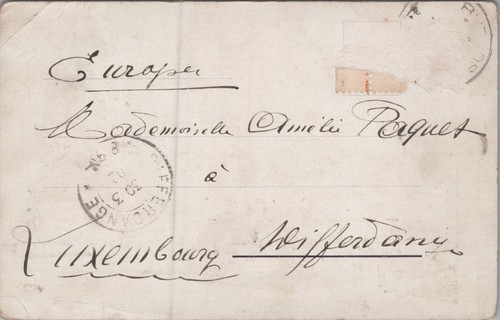 Europe
Mademoiselle Amélie Paquet
à
Luxembourg Differdange
DIFFERDANGE
30 3
02
8-9N